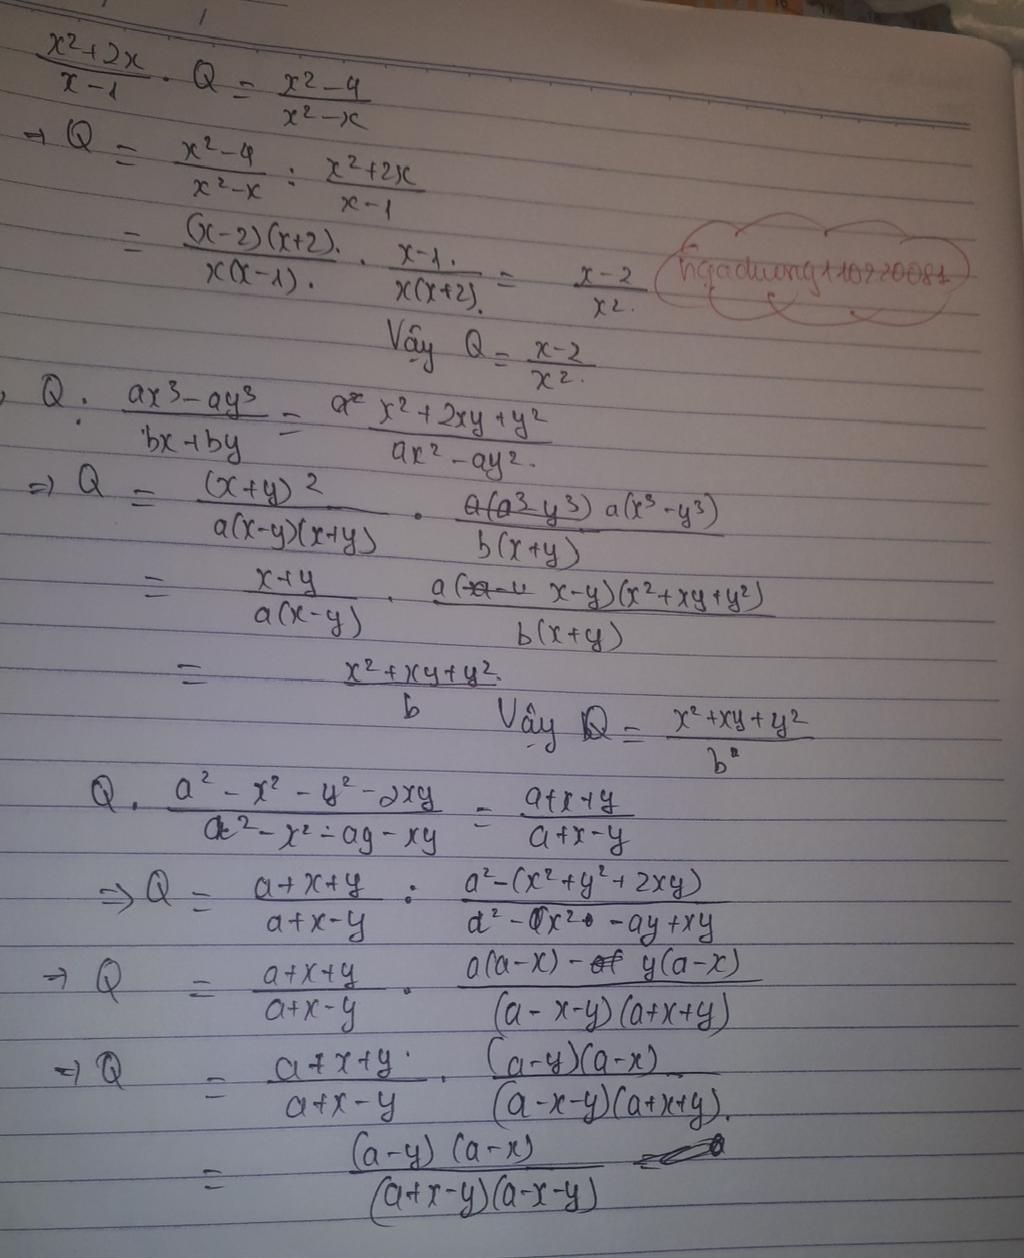 (x²+2x)/(x-1) . Q = (x²-4)/(x²-x)
→ Q = (x²-4)/(x²-x) : (x²+2x)/(x-1)
= (x-2)(x+2)./x(x-1). . x-1./x(x+2). = x-2/x². ngaduong110220081
Vậy Q = x-2/x².
Q : (ax³-ay³)/(bx+by) = (x²+2xy+y²)/(ax²-ay².)
=> Q = (x+y)²/a(x-y)(x+y) . a(x³-y³)/b(x+y)
= (x+y)/a(x-y) . a(x-y)(x²+xy+y²)/b(x+y)
= (x²+xy+y².)/b
Vậy Q = (x²+xy+y²)/b
Q . (a²-x²-y²-2xy)/(a²-x²-ay-xy) = (a+x+y)/(a+x-y)
=> Q = (a+x+y)/(a+x-y) : (a²-(x²+y²+2xy))/(a²-x²-ay+xy)
→ Q = (a+x+y)/(a+x-y) . (a(a-x)-y(a-x))/(a-x-y)(a+x+y)
→ Q = (a+x+y)/(a+x-y) . (a-y)(a-x)/(a-x-y)(a+x+y).
= (a-y)(a-x)/(a+x-y)(a-x-y)